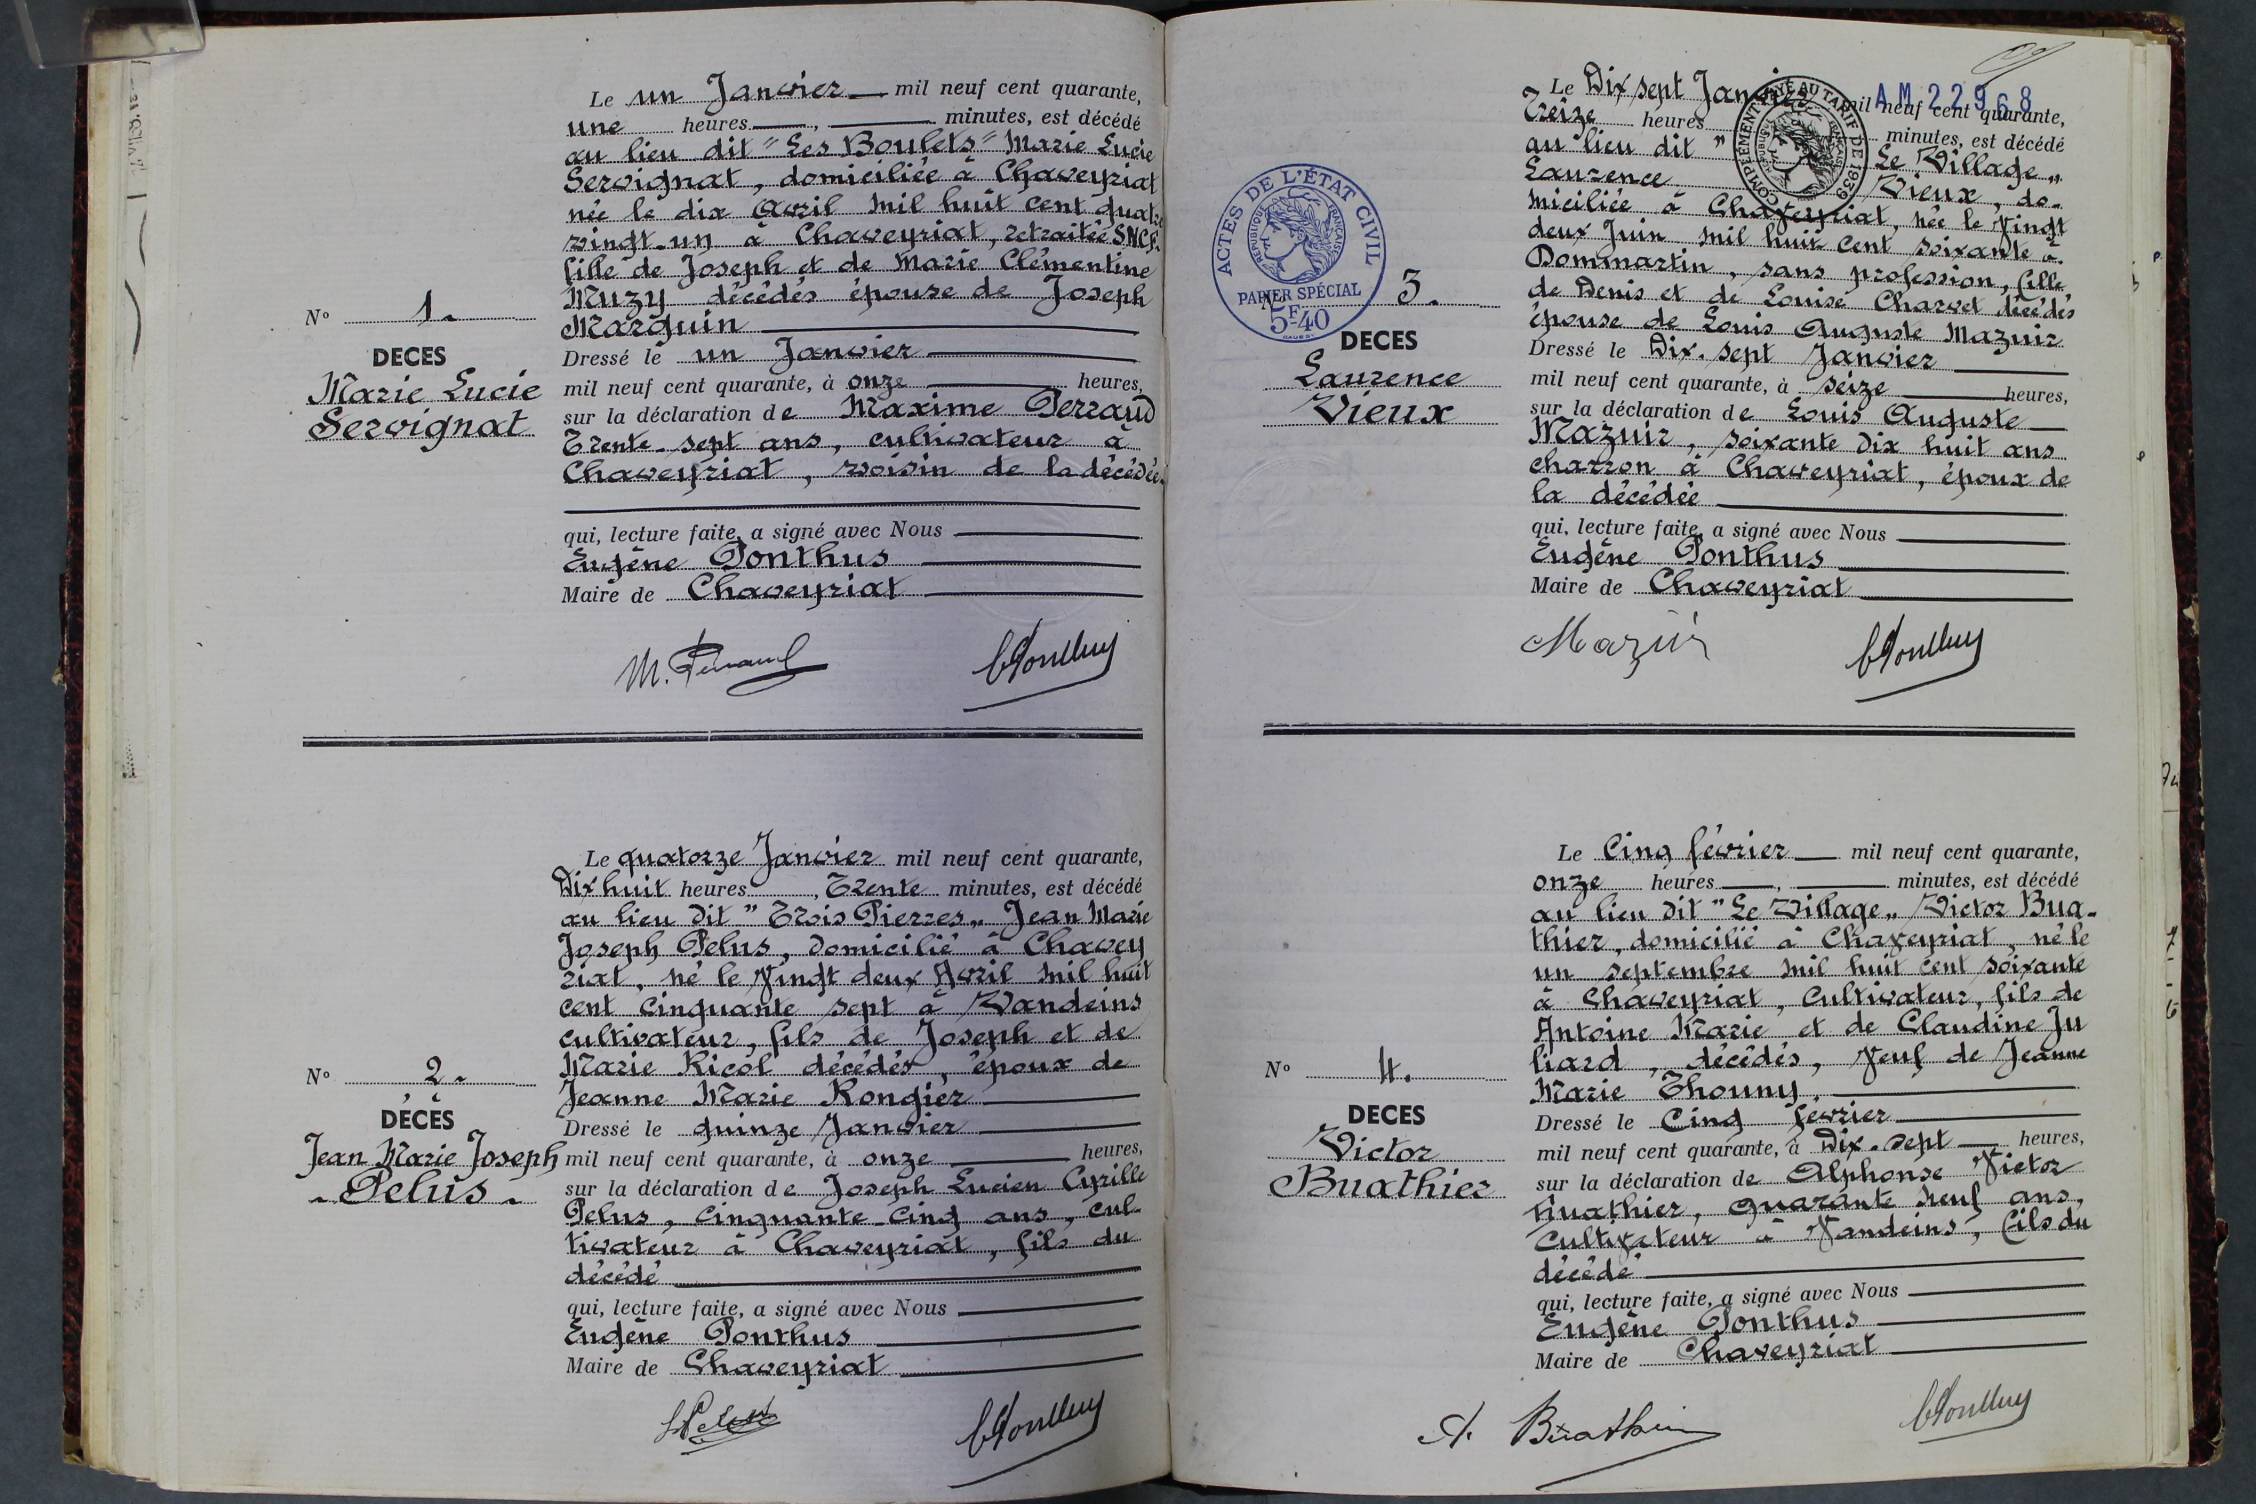 Le un Janvier mil neuf cent quarante,
une heures , minutes, est décédé
au lieu dit "Les Boulets" Marie Lucie
Servignat, domiciliée à Chaveyriat
née le dix Avril mil huit cent quatre
vingt-un à Chaveyriat, retraitée SNCF.
fille de Joseph et de Marie Clémentine
Muzy décédés épouse de Joseph
Marguin
N° 1.
DECES
Marie Lucie
Servignat
Dressé le un Janvier
mil neuf cent quarante, à onze heures,
sur la déclaration de Maxime Perraud
Trente-sept ans, cultivateur à
Chaveyriat, voisin de la décédée.
qui, lecture faite, a signé avec Nous
Eugène Ponthus
Maire de Chaveyriat
M. Perraud
Le quatorze Janvier mil neuf cent quarante,
Dix huit heures , Trente minutes, est décédé
au lieu dit "Trois Pierres" Jean Marie
Joseph Pelus, domicilié à Chavey
riat, né le vingt deux Avril mil huit
cent cinquante sept à Vandeins
cultivateur, fils de Joseph et de
Marie Ricol décédés, époux de
Jeanne Marie Rongier
N° 2.
DÉCÈS
Jean Marie Joseph
- Pelus -
Dressé le quinze Janvier
mil neuf cent quarante, à onze heures,
sur la déclaration de Joseph Lucien Cyrille
Pelus, cinquante-cinq ans, cul-
tivateur à Chaveyriat, fils du
décédé
qui, lecture faite, a signé avec Nous
Eugène Ponthus
Maire de Chaveyriat
AM 22968
Le Dix sept Janvier mil neuf cent quarante,
Treize heures minutes, est décédé
au lieu dit " Le Village"
Laurence Vieux, do-
miciliée à Chaveyriat, née le vingt
deux Juin mil huit cent soixante à
Dommartin, sans profession, fille
de Denis et de Louise Charvet décédés
épouse de Louis Auguste Mazuir
COMPLÉMENT PAYÉ AU TARIF DE 1939
RÉPUBLIQUE FRANÇAISE
ACTES DE L'ÉTAT CIVIL
RÉPUBLIQUE FRANÇAISE
PAPIER SPÉCIAL
5F40
N° 3.
DECES
Laurence
Vieux
Dressé le Dix-sept Janvier
mil neuf cent quarante, à seize heures,
sur la déclaration de Louis Auguste
Mazuir, soixante dix huit ans
charron à Chaveyriat, époux de
la décédée
qui, lecture faite, a signé avec Nous
Eugène Ponthus
Maire de Chaveyriat
Mazuir
Le Cinq février mil neuf cent quarante,
onze heures , minutes, est décédé
au lieu dit "Le Village" Victor Bua-
thier, domicilié à Chaveyriat, né le
un septembre mil huit cent soixante
à Chaveyriat, Cultivateur, fils de
Antoine Marie et de Claudine Ju
liard, décédés, veuf de Jeanne
Marie Thouny.
N° 4.
DECES
Victor
Buathier
Dressé le Cinq février
mil neuf cent quarante, à Dix-sept heures,
sur la déclaration de Alphonse Victor
Buathier, quarante neuf ans,
Cultivateur à Vandeins, fils du
décédé
qui, lecture faite, a signé avec Nous
Eugène Ponthus
Maire de Chaveyriat
A. Buathier